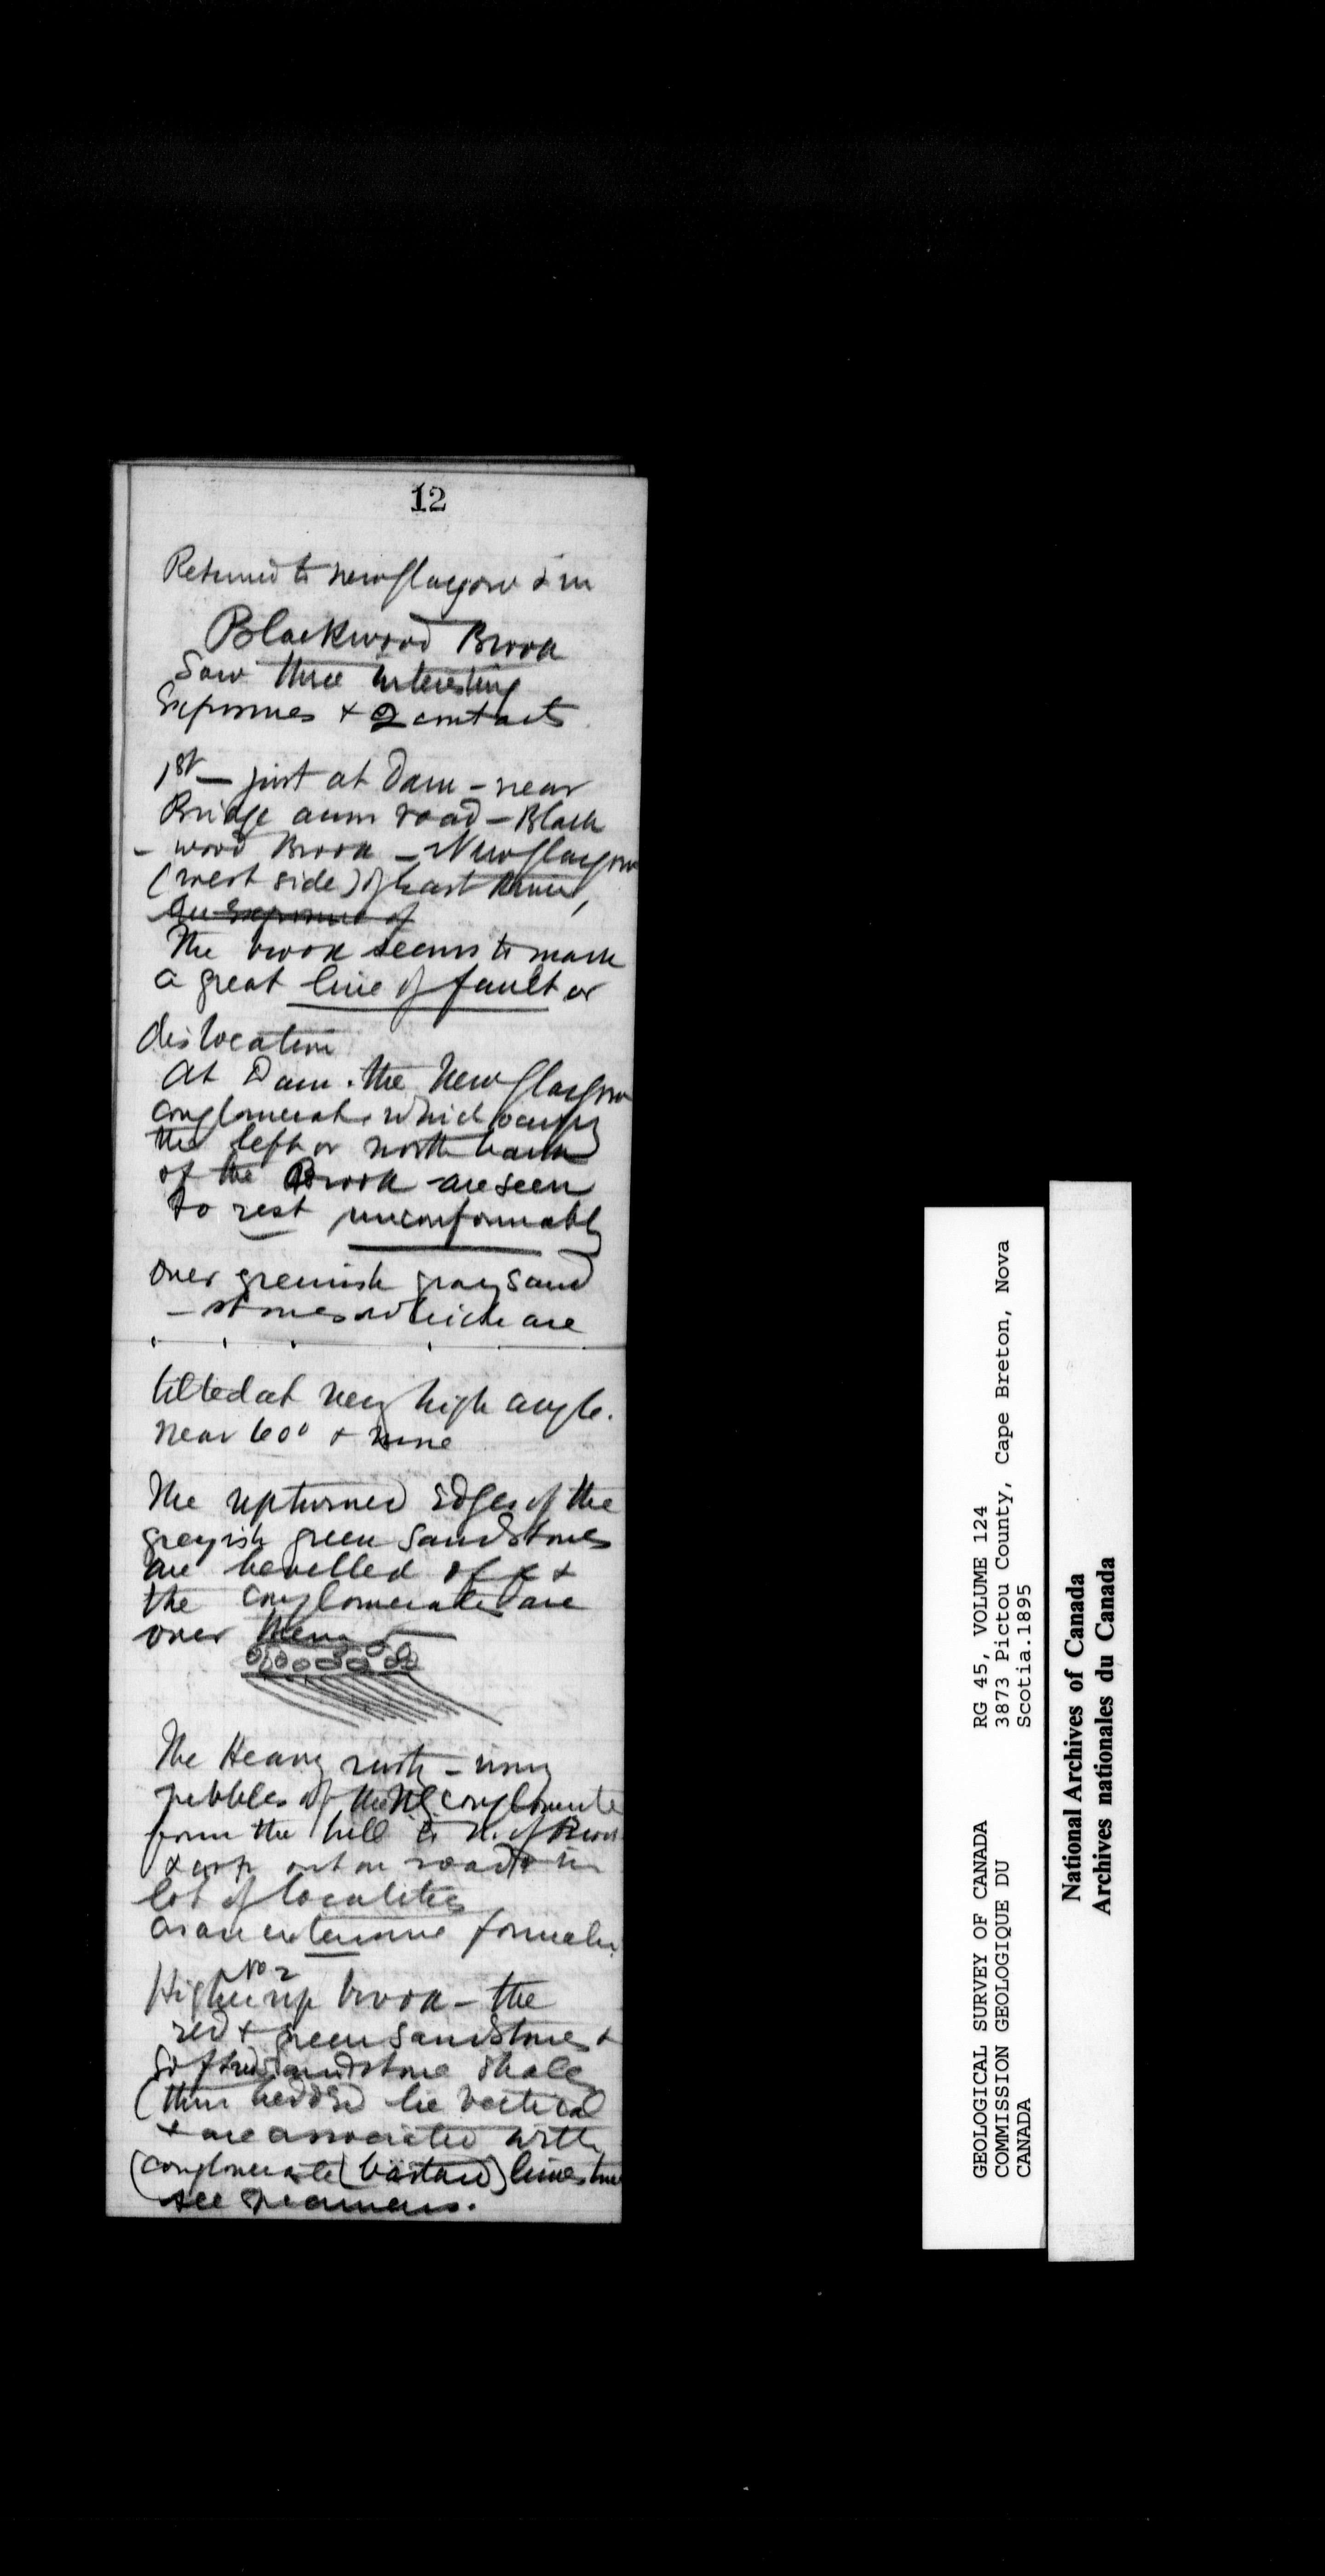 12
Returned to New Glasgow & in
Blackwood Brook
Saw three interesting
Exposures + 2 contacts
1st — just at Dam — near
Bridge road — Black
- wood Brook — New Glasgow
(west side) of East River,
An exposure of
The brook seems to mark
a great line of fault or
dislocation
At Dam. the New Glasgow
conglomerate which occupy
the left or north bank
of the Brook are seen
to rest unconformably
over greenish gray sand
- stones which are
tilted at very high angle.
near 60° + more
The upturned edges of the
greyish green sandstones
are bevelled off &
the conglomerates are
over them —
The Heavy rusty - irony
pebbles of the N.G. conglomerate
form the hill to N. of Brook
& crop out on road & in
lot of localities
as an extensive formation
No 2
Higher up brook — the
red + green sandstones &
soft red sandstone shaley
(thin bedded lie vertical
+ are associated with
(conglomerate (bastard) limestone
see specimens.
GEOLOGICAL SURVEY OF CANADA
COMMISSION GEOLOGIQUE DU
CANADA
RG 45, VOLUME 124
3873 Pictou County, Cape Breton, Nova
Scotia.1895
National Archives of Canada
Archives nationales du Canada